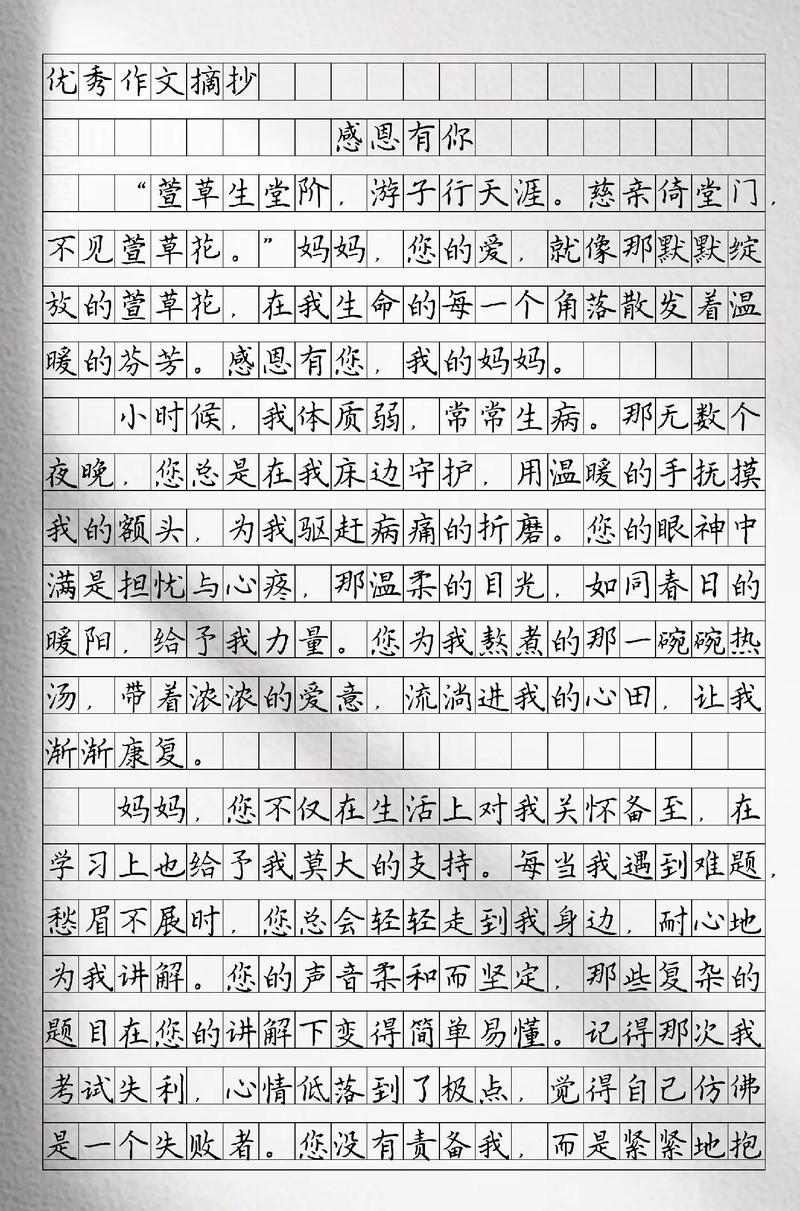 优秀作文摘抄
感恩有你
“萱草生堂阶，游子行天涯。慈亲倚堂门，
不见萱草花。”妈妈，您的爱，就像那默默绽
放的萱草花，在我生命的每一个角落散发着温
暖的芬芳。感恩有您，我的妈妈。
小时候，我体质弱，常常生病。那无数个
夜晚，您总是在我床边守护，用温暖的手抚摸
我的额头，为我驱赶病痛的折磨。您的眼神中
满是担忧与心疼，那温柔的目光，如同春日的
暖阳，给予我力量。您为我熬煮的那一碗碗热
汤，带着浓浓的爱意，流淌进我的心田，让我
渐渐康复。
妈妈，您不仅在生活上对我关怀备至，在
学习上也给予我莫大的支持。每当我遇到难题，
愁眉不展时，您总会轻轻走到我身边，耐心地
为我讲解。您的声音柔和而坚定，那些复杂的
题目在您的讲解下变得简单易懂。记得那次我
考试失利，心情低落到了极点，觉得自己仿佛
是一个失败者。您没有责备我，而是紧紧地抱